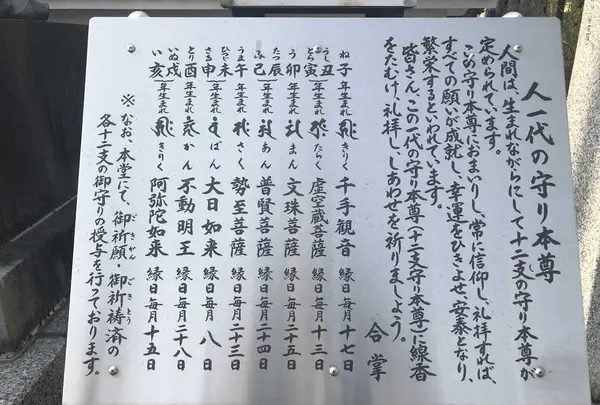 人一代の守り本尊
人間は、生まれながらにして十二支の守り本尊が
定められています。
この守り本尊におまいりし、常に信仰し、礼拝すれば、
すべての願いが成就し、幸運をひきよせ、安泰となり、
繁栄するといわれています。
皆さん、この一代の守り本尊(十二支守り本尊)に線香
をたむけ、礼拝ししあわせを祈りましょう。
合掌
ね子年生まれ きりく 千手観音 縁日毎月十七日
うし丑とら寅年生まれ たらく 虚空蔵菩薩 縁日毎月十三日
う卯年生まれ まん 文珠菩薩 縁日毎月二十五日
たつ辰み巳年生まれ あん 普賢菩薩 縁日毎月二十四日
うま午年生まれ さく 勢至菩薩 縁日毎月二十三日
ひつじ未さる申年生まれ ばん 大日如来 縁日毎月八日
とり酉年生まれ かん 不動明王 縁日毎月二十八日
いぬ戌い亥年生まれ きりく 阿弥陀如来 縁日毎月十五日
※なお、本堂にて、御祈願・御祈祷済の
各十二支の御守りの授与を行っております。